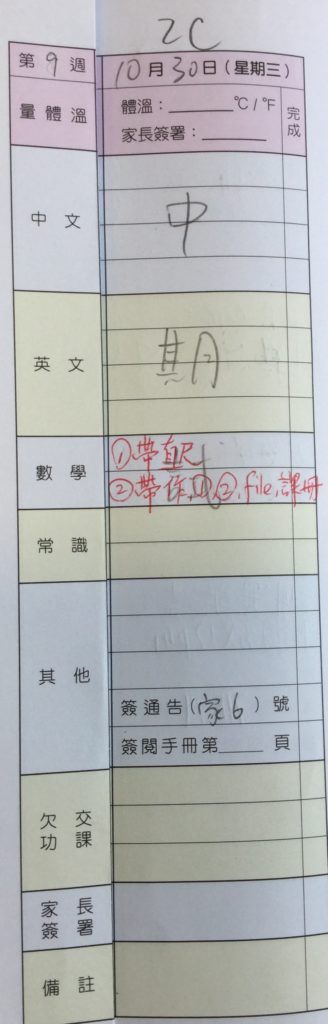 2C
第9週 10月30日(星期三)
量體溫 體溫：______℃/℉ 完成
家長簽署：______
中文 中
英文 期
數學 ①.帶直尺
②.帶作①,②,file,課冊
常識
其他
簽通告(家6)號
簽閱手冊第____頁
欠交功課
家長簽署
備註